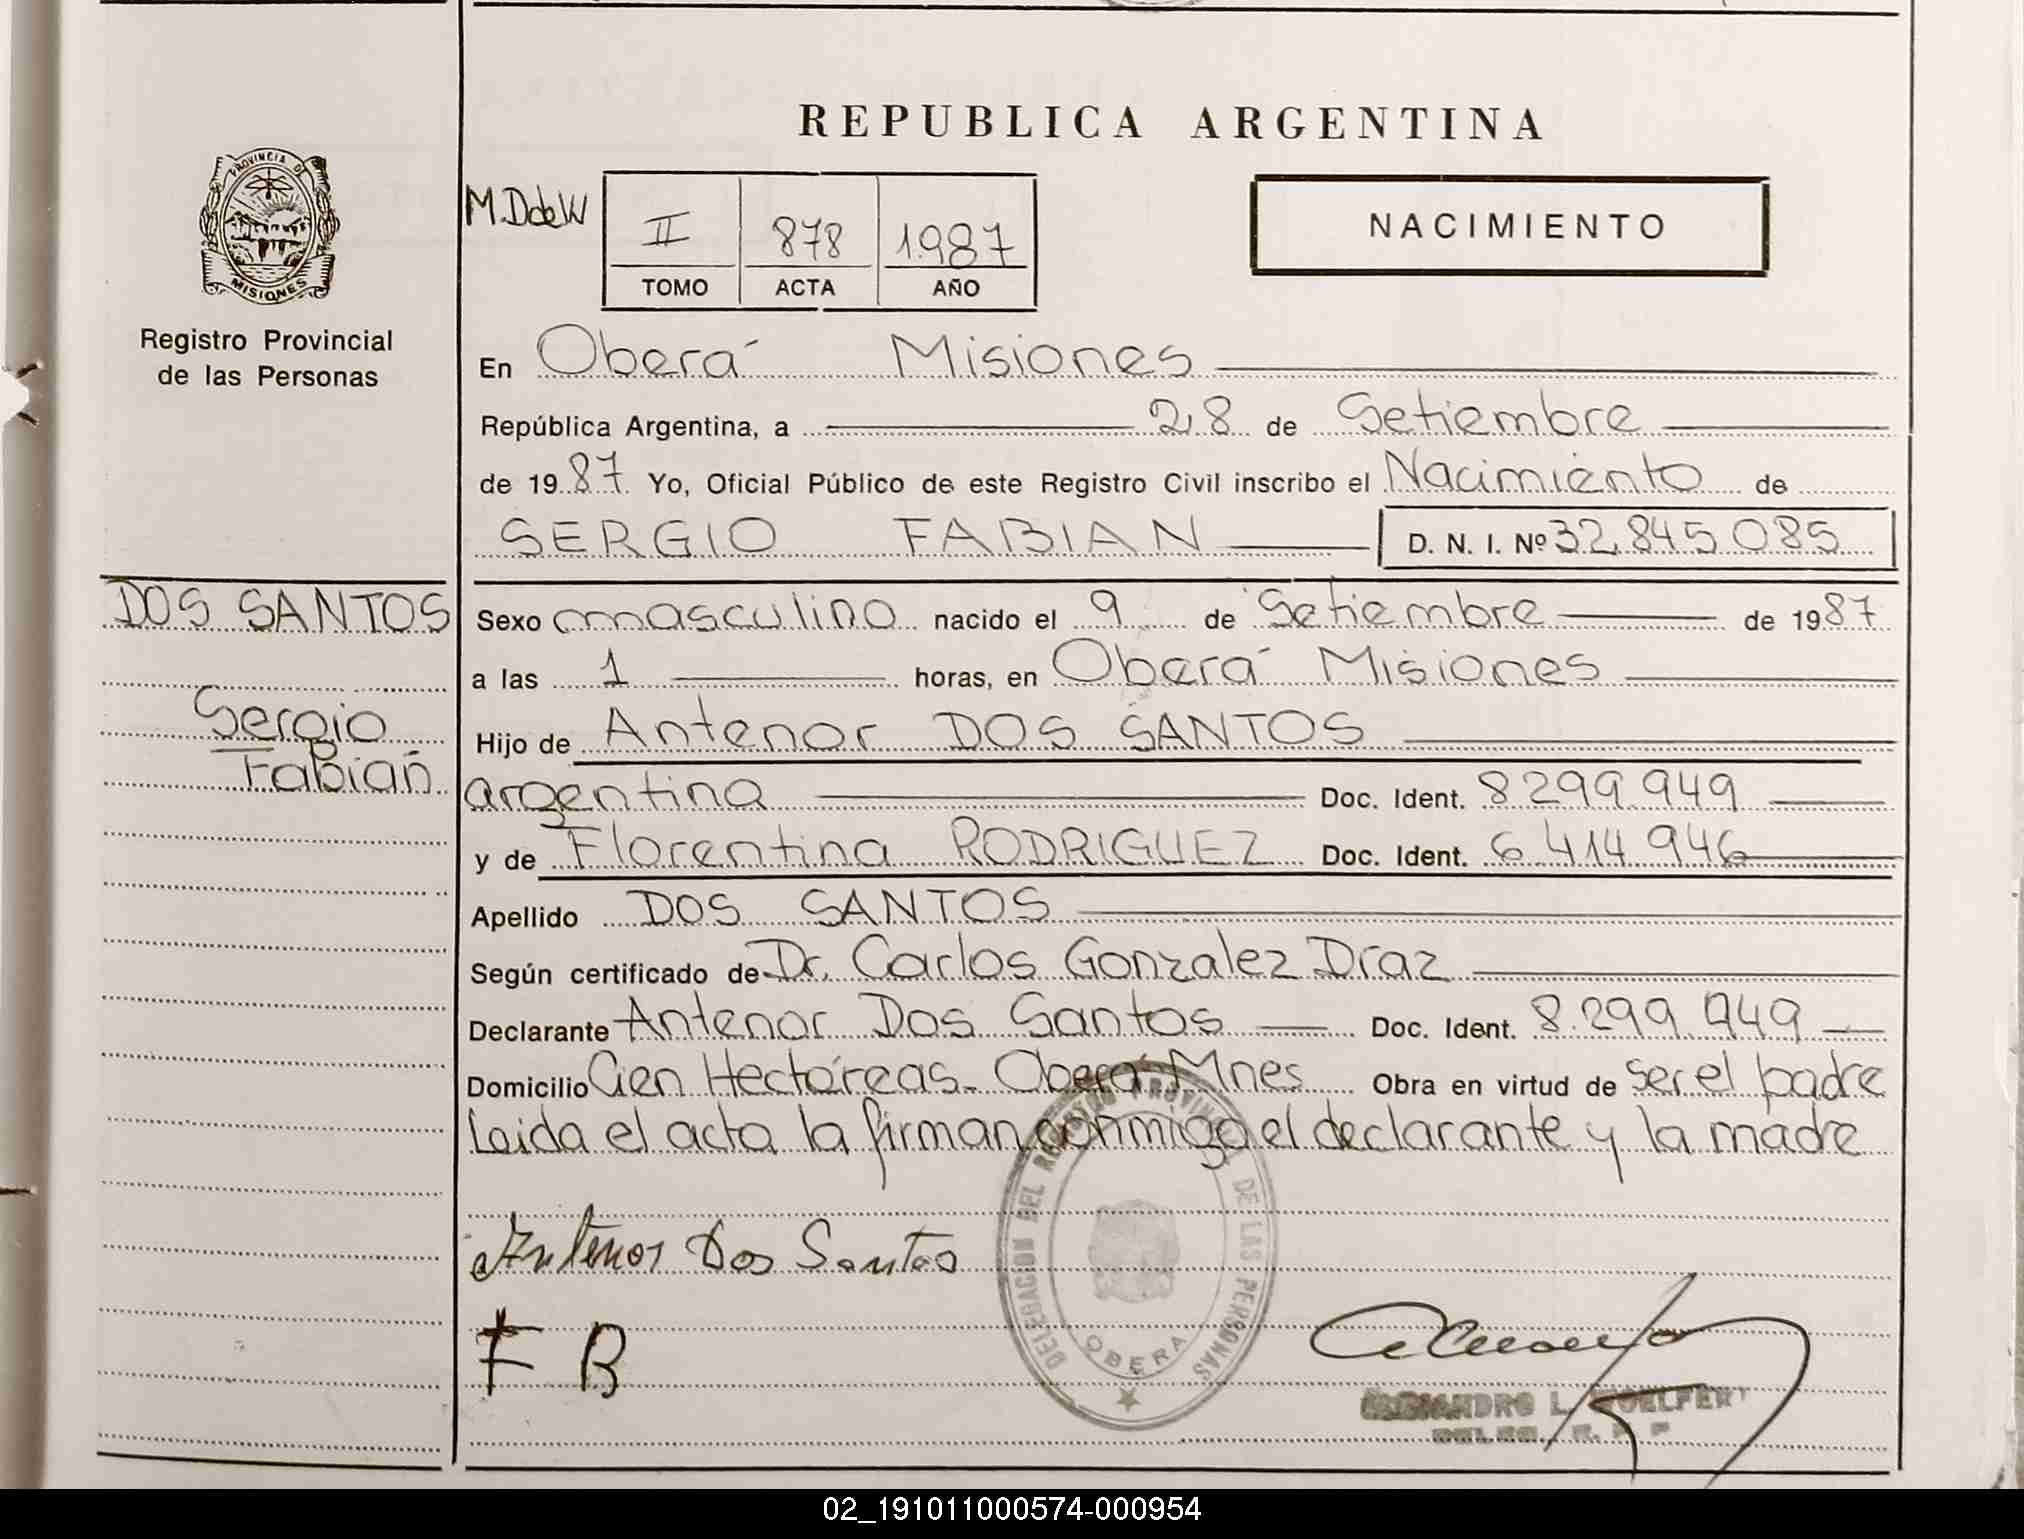 REPUBLICA ARGENTINA
PROVINCIA DE
MISIONES
Registro Provincial
de las Personas
M.DdeW
II 878 1.987
TOMO ACTA AÑO
NACIMIENTO
En Oberá Misiones
República Argentina, a 28 de Setiembre
de 1987 Yo, Oficial Público de este Registro Civil inscribo el Nacimiento de
SERGIO FABIAN D. N. I. Nº 32.845.085
DOS SANTOS
Sergio
Fabian
Sexo masculino nacido el 9 de Setiembre de 1987
a las 1 horas, en Oberá Misiones
Hijo de Antenor DOS SANTOS
argentina Doc. Ident. 8.299.949
y de Florentina RODRIGUEZ Doc. Ident. 6.414.946
Apellido DOS SANTOS
Según certificado de Dr. Carlos Gonzalez Díaz
Declarante Antenor Dos Santos Doc. Ident. 8.299.949
Domicilio Cien Hectáreas. Oberá Mnes Obra en virtud de ser el padre
Leida el acta la firman conmigo el declarante y la madre
Antenor Dos Santos
F B
DELEGACION DEL REGISTRO PROVINCIAL DE LAS PERSONAS
OBERA
02_191011000574-000954